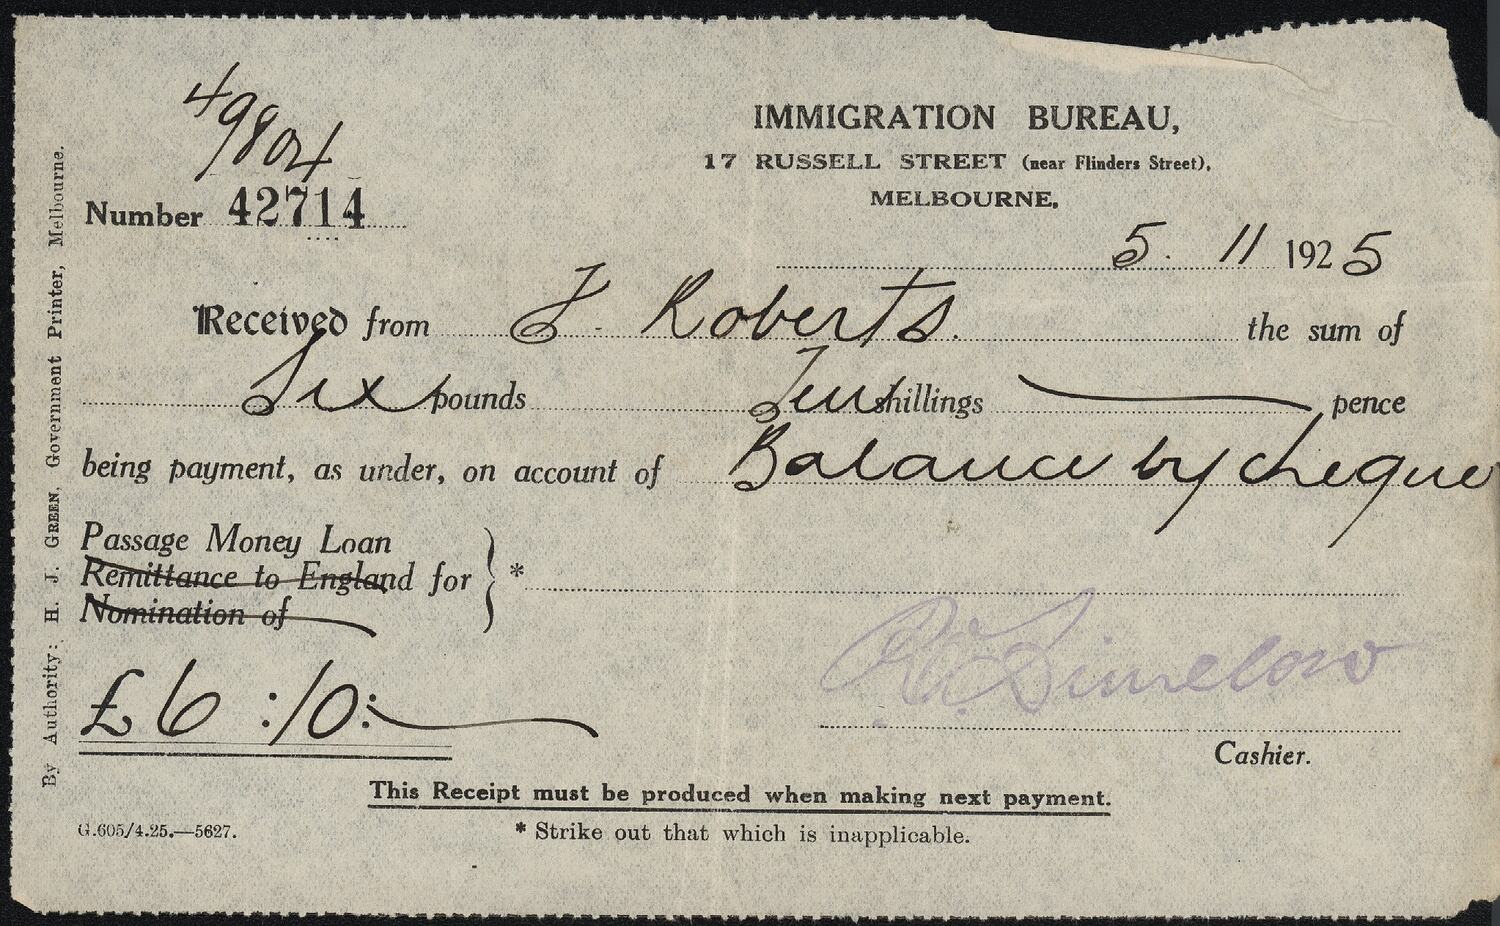 49804
IMMIGRATION BUREAU,
17 RUSSELL STREET (near Flinders Street),
MELBOURNE,
Number 42714
5. 11 1925
Received from F. Roberts. the sum of
Six pounds Ten shillings — pence
being payment, as under, on account of Balance by cheque
Passage Money Loan
Remittance to England for } *
Nomination of
£ 6 : 10 : —
Cashier.
This Receipt must be produced when making next payment.
G.605/4.25.—5627.
* Strike out that which is inapplicable.
By Authority: H. J. GREEN, Government Printer, Melbourne.